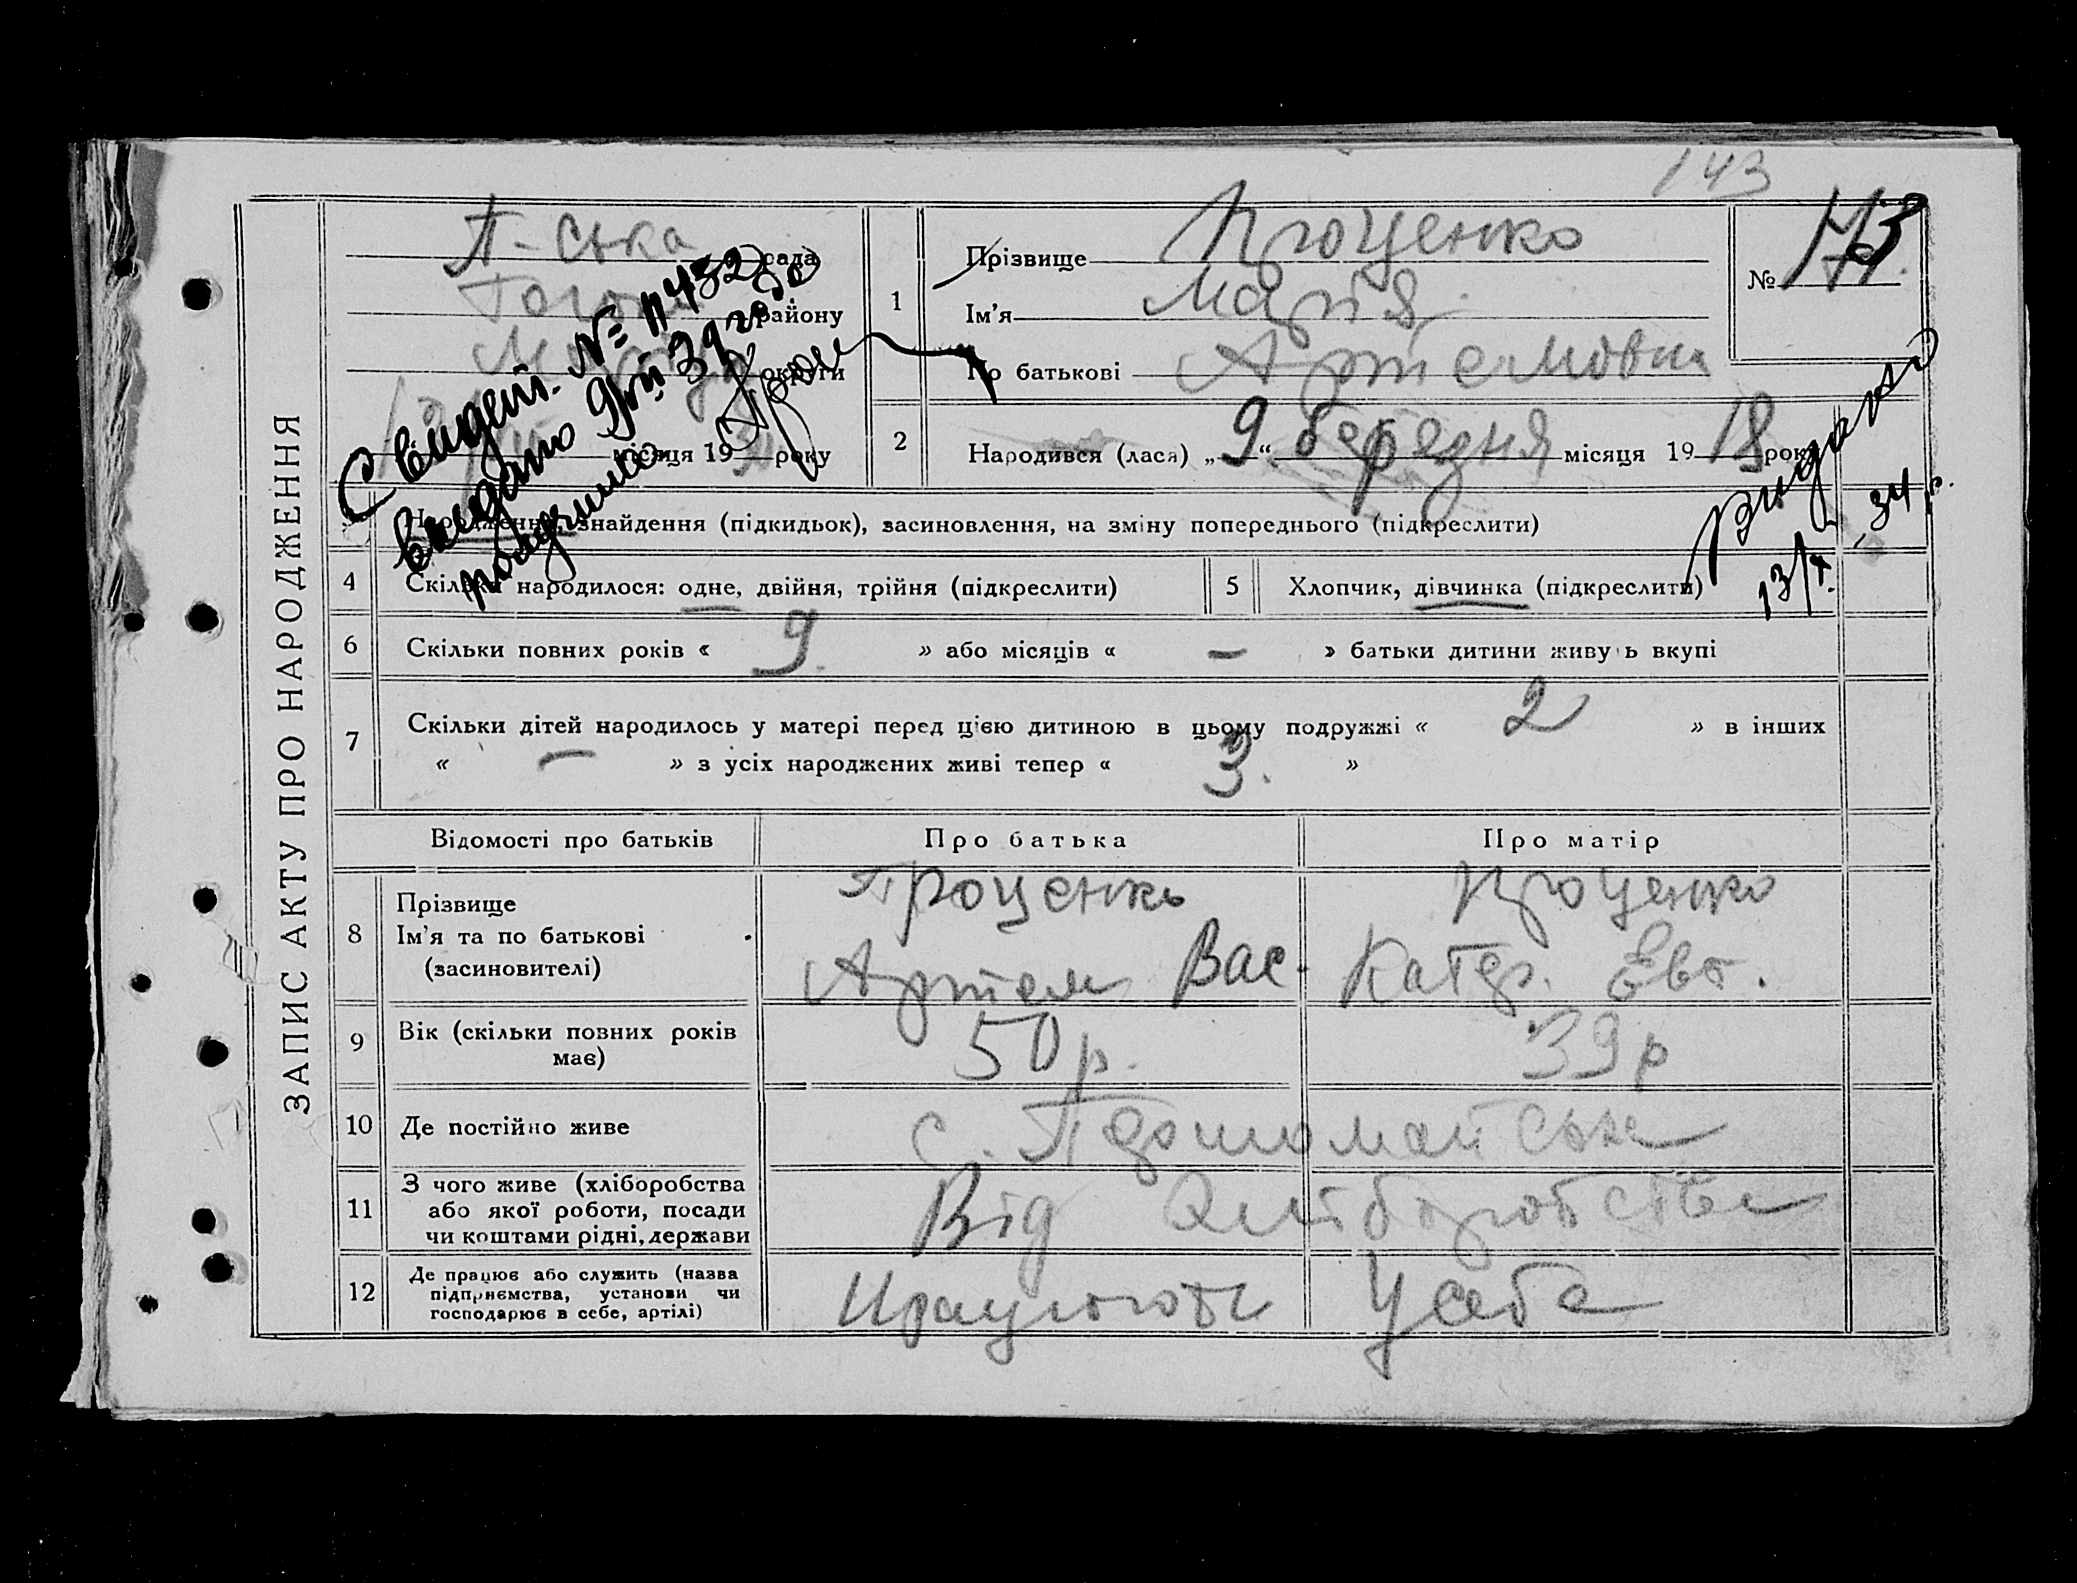 143
ЗАПИС АКТУ ПРО НАРОДЖЕННЯ
П-ська рада
району
округи
місяця 19 року
Свидет. № 11432
видано 9/VII 39 года
1
Прізвище Проценко
Ім'я Марія
По батькові Артемовна
№ 173
2
Народився (лася) „9“ березня місяця 1918 року
Видано
13/X 34 р.
Народження, знайдення (підкидьок), засиновлення, на зміну попереднього (підкреслити)
4
Скільки народилося: одне, двійня, трійня (підкреслити)
5
Хлопчик, дівчинка (підкреслити)
6
Скільки повних років « 9. » або місяців « – » батьки дитини живуть вкупі
7
Скільки дітей народилось у матері перед цією дитиною в цьому подружжі « 2 » в інших
« – » з усіх народжених живі тепер « 3. »
Відомості про батьків
Про батька
Про матір
8
Прізвище
Ім'я та по батькові
(засиновителі)
Проценко
Артем Вас.
Проценко
Катер. Євт.
9
Вік (скільки повних років
має)
50 р.
39 р
10
Де постійно живе
с. Першомайське
11
З чого живе (хліборобства
або якої роботи, посади
чи коштами рідні, держави
Від хліборобства
12
Де працює або служить (назва
підприємства, установи чи
господарює в себе, артілі)
Працюють у себе